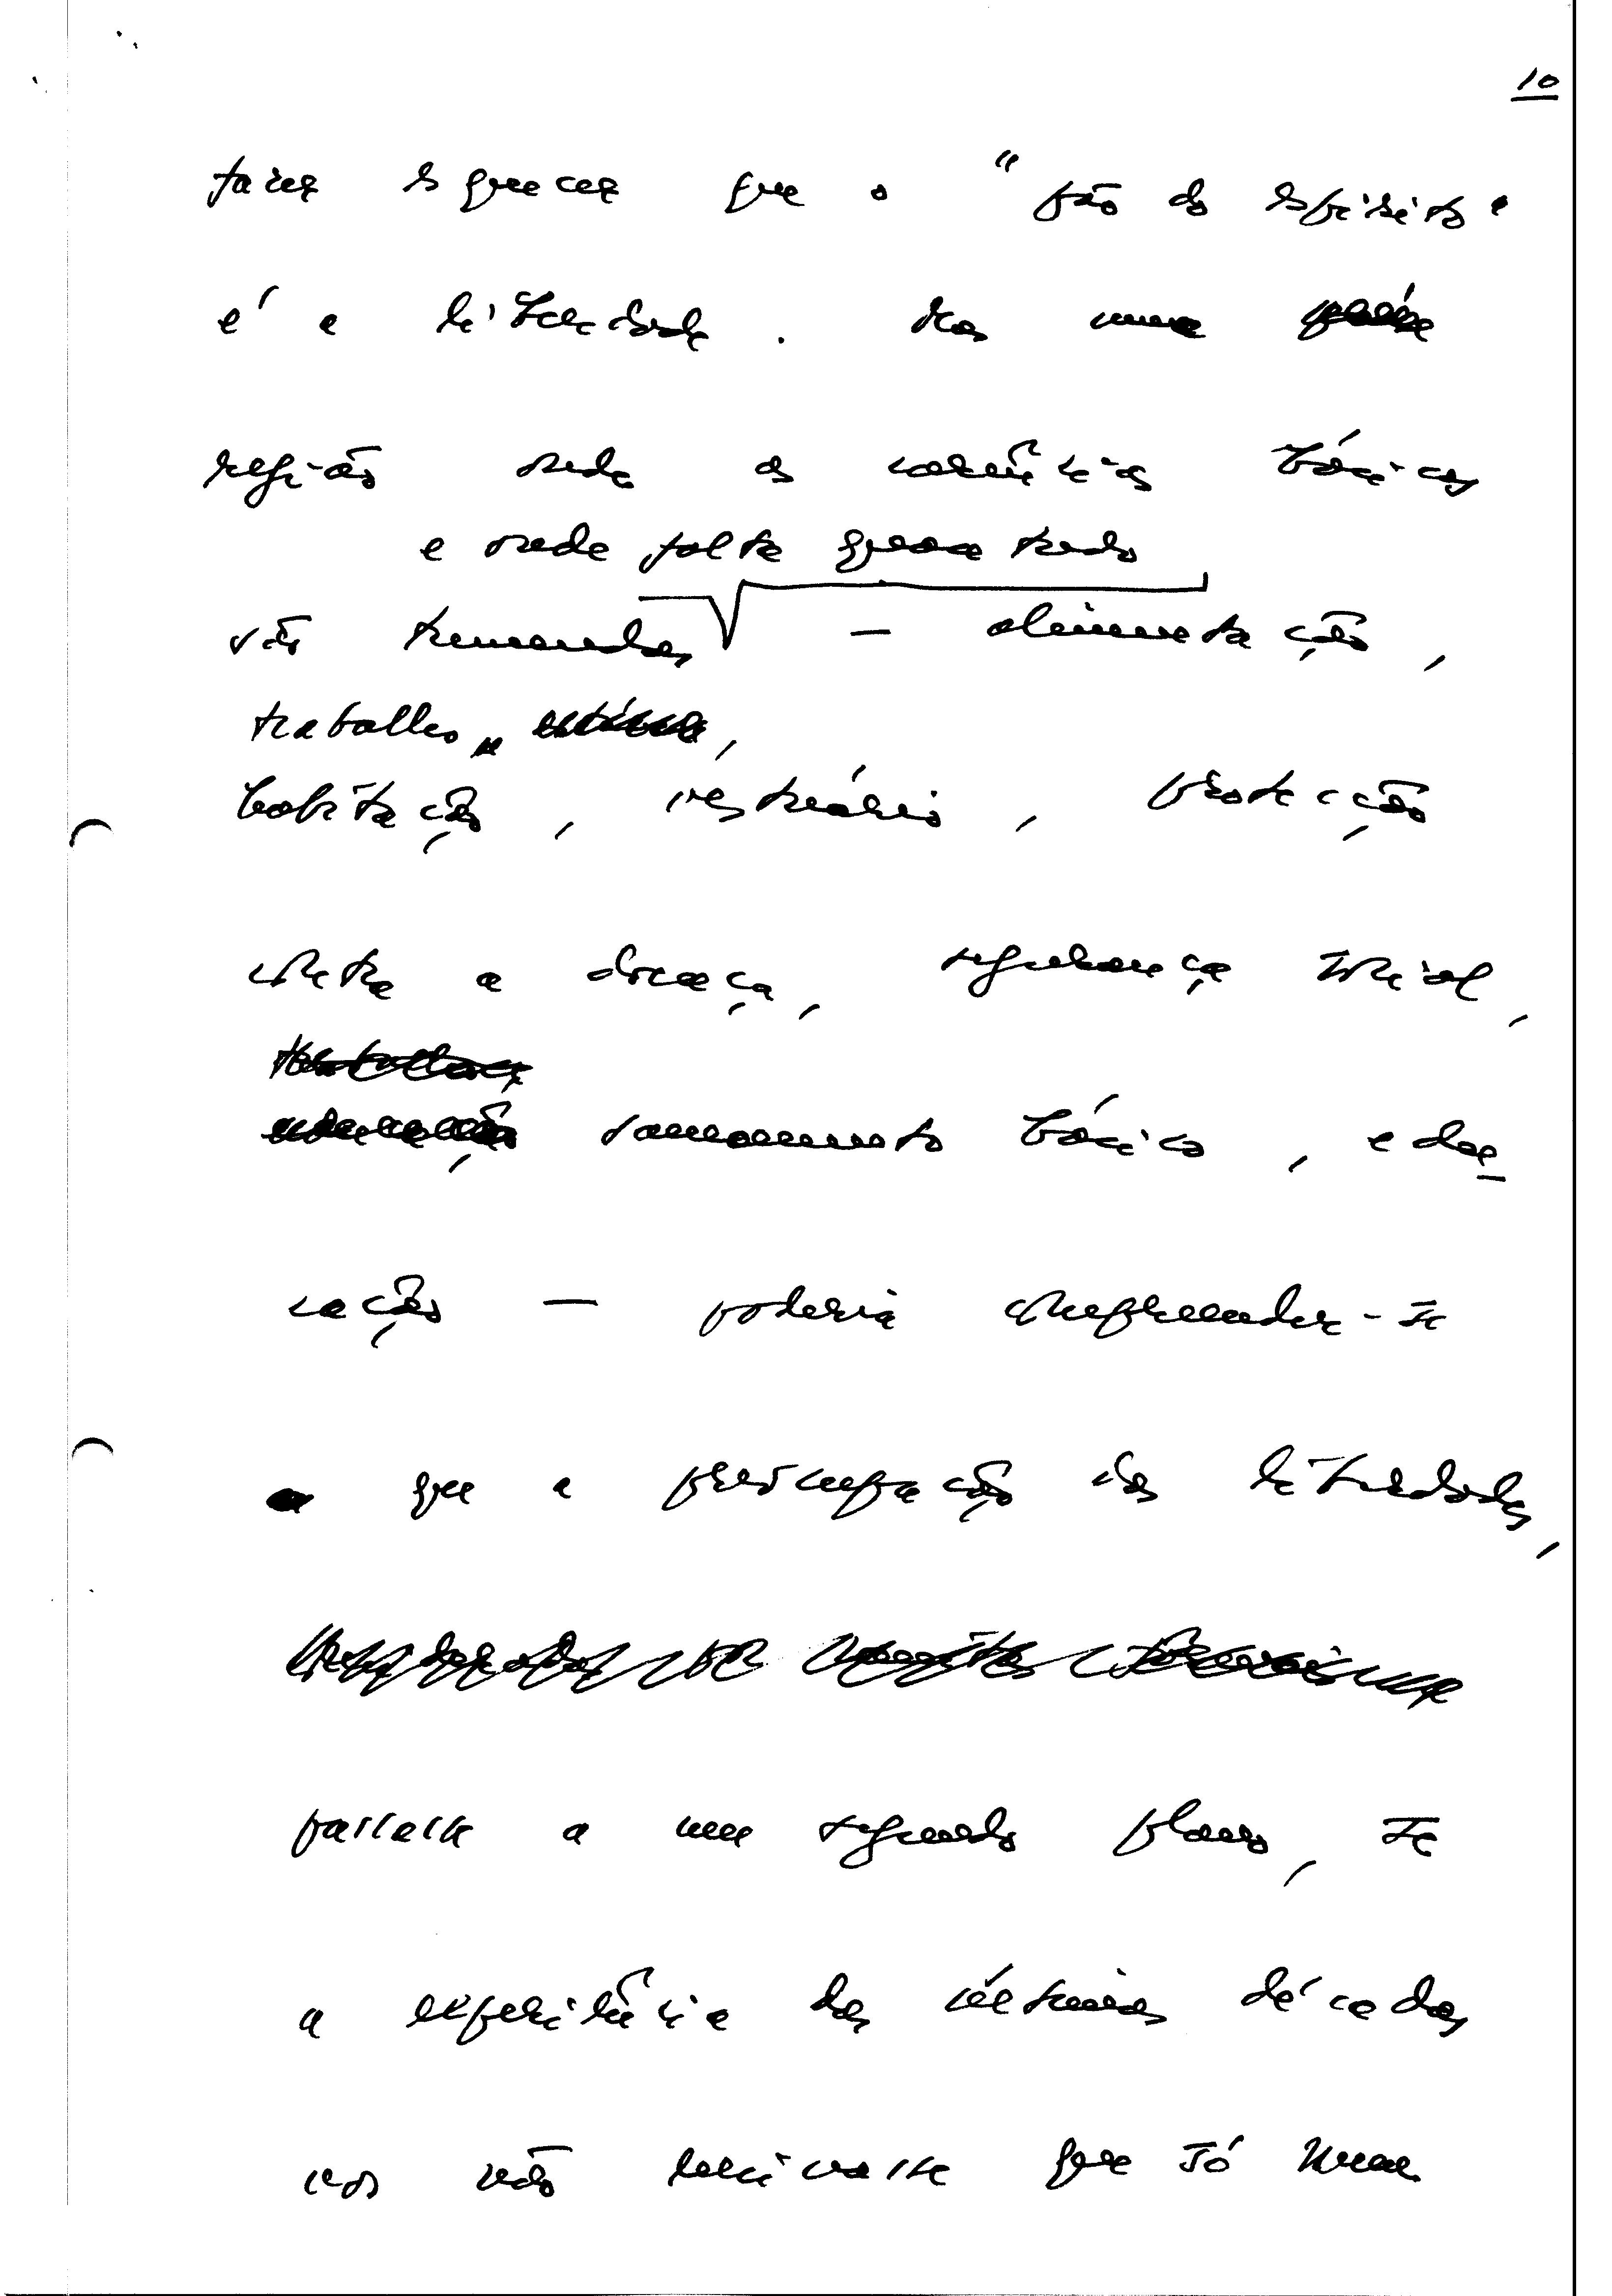 10
fazer esquecer que o "pão do espírito"
é a liberdade. Mas numa
região onde as carências básicas
e onde falta quase tudo
são tremendas – alimentação,
trabalho,
habitação, vestuário, protecção
contra a doença, segurança social,
saneamento básico, edu-
cação – poderia compreender-se
que a preocupação das liberdades,
passasse a um segundo plano, se
a experiência das últimas décadas
nos não ensinasse que só numa